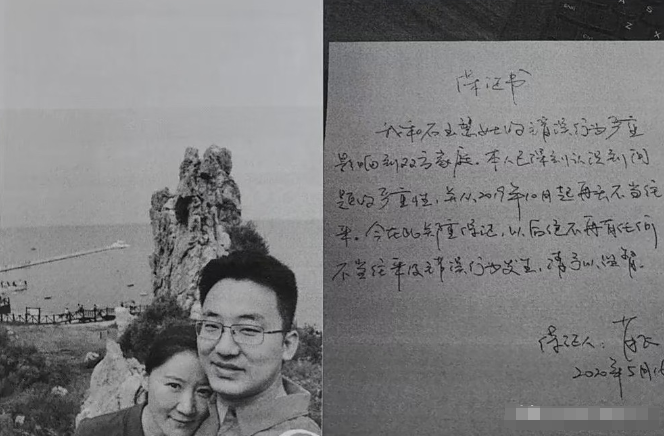 保证书
我和石玉慧女士的错误行为严重
影响到双方家庭。本人已深刻认识到问
题的严重性，并从2019年10月起再无不当往
来。今在此郑重保证，以后绝不再有任何
不当往来及错误行为发生，请予以监督。
保证人：
2020年5月